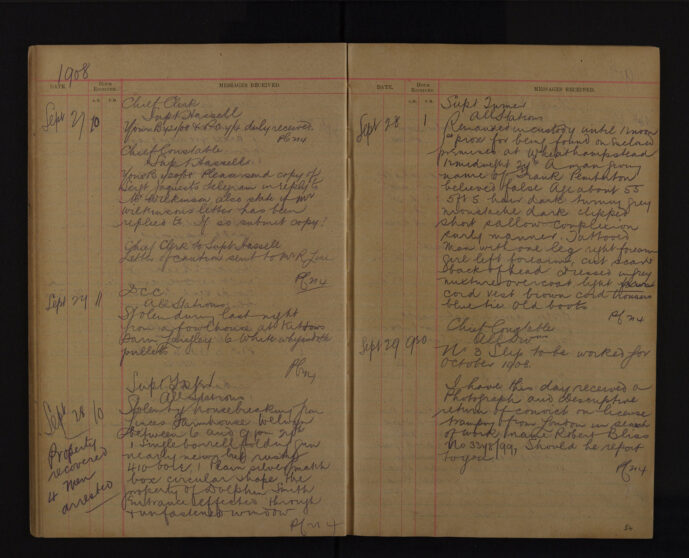 1908
DATE. HOUR RECEIVED. MESSAGES RECEIVED.
A.M. P.M.
Sept 27 10
Chief Clerk
Supt Hassell
duly received
Pc 114
Chief Constable
Supt Hassell
Please send copy of
Sergt Jaques's telegram in reply to
Mr Wilkinson also state if Mr
Wilkinsons letter has been
replied to. If so submit copy?
Chief Clerk to Supt Hassell
Letter of caution sent to Mr R
Pc 114
Sept 27 11
DCC
All Stations
Stolen during last night
from a fowlhouse at
Farm Langley 6 White whyandotte
pullets
Sept 28 10
Property
recovered
4 men
arrested
Supt
All Stations
Stolen by housebreaking from
Farmhouse Welwyn
between 6 and 9 pm 27th
1 Single barrell folding gun
nearly new but rusty
410 bore, 1 plain silver match
box circular shape the
property of Dolphin Smith
Entrance effected through
unfastened window
Pc 114
DATE. HOUR RECEIVED. MESSAGES RECEIVED.
A.M. P.M.
Sept 28 1
Supt
All Stations
Remanded in custody until
prox for being found on enclosed
premises at Wheathampstead
12 midnight 27th a man giving
name of Frank Pemberton
believed false Age about 55
5ft 5 hair dark turning grey
moustache dark clipped
short sallow complexion
surly manner. Tattooed
man with one leg right forearm
girl left forearm, cut scar
back of head dressed in grey
mixture overcoat light
cord vest brown cord trousers
blue tie old boots
Pc 114
Sept 29 9 20
Chief Constable
All
No 3 Slip to be worked for
October 1908.
I have this day received a
Photograph and descriptive
return of convict on license
tramping from London in search
of work name Robert Bliss
Should he report
Pc 114